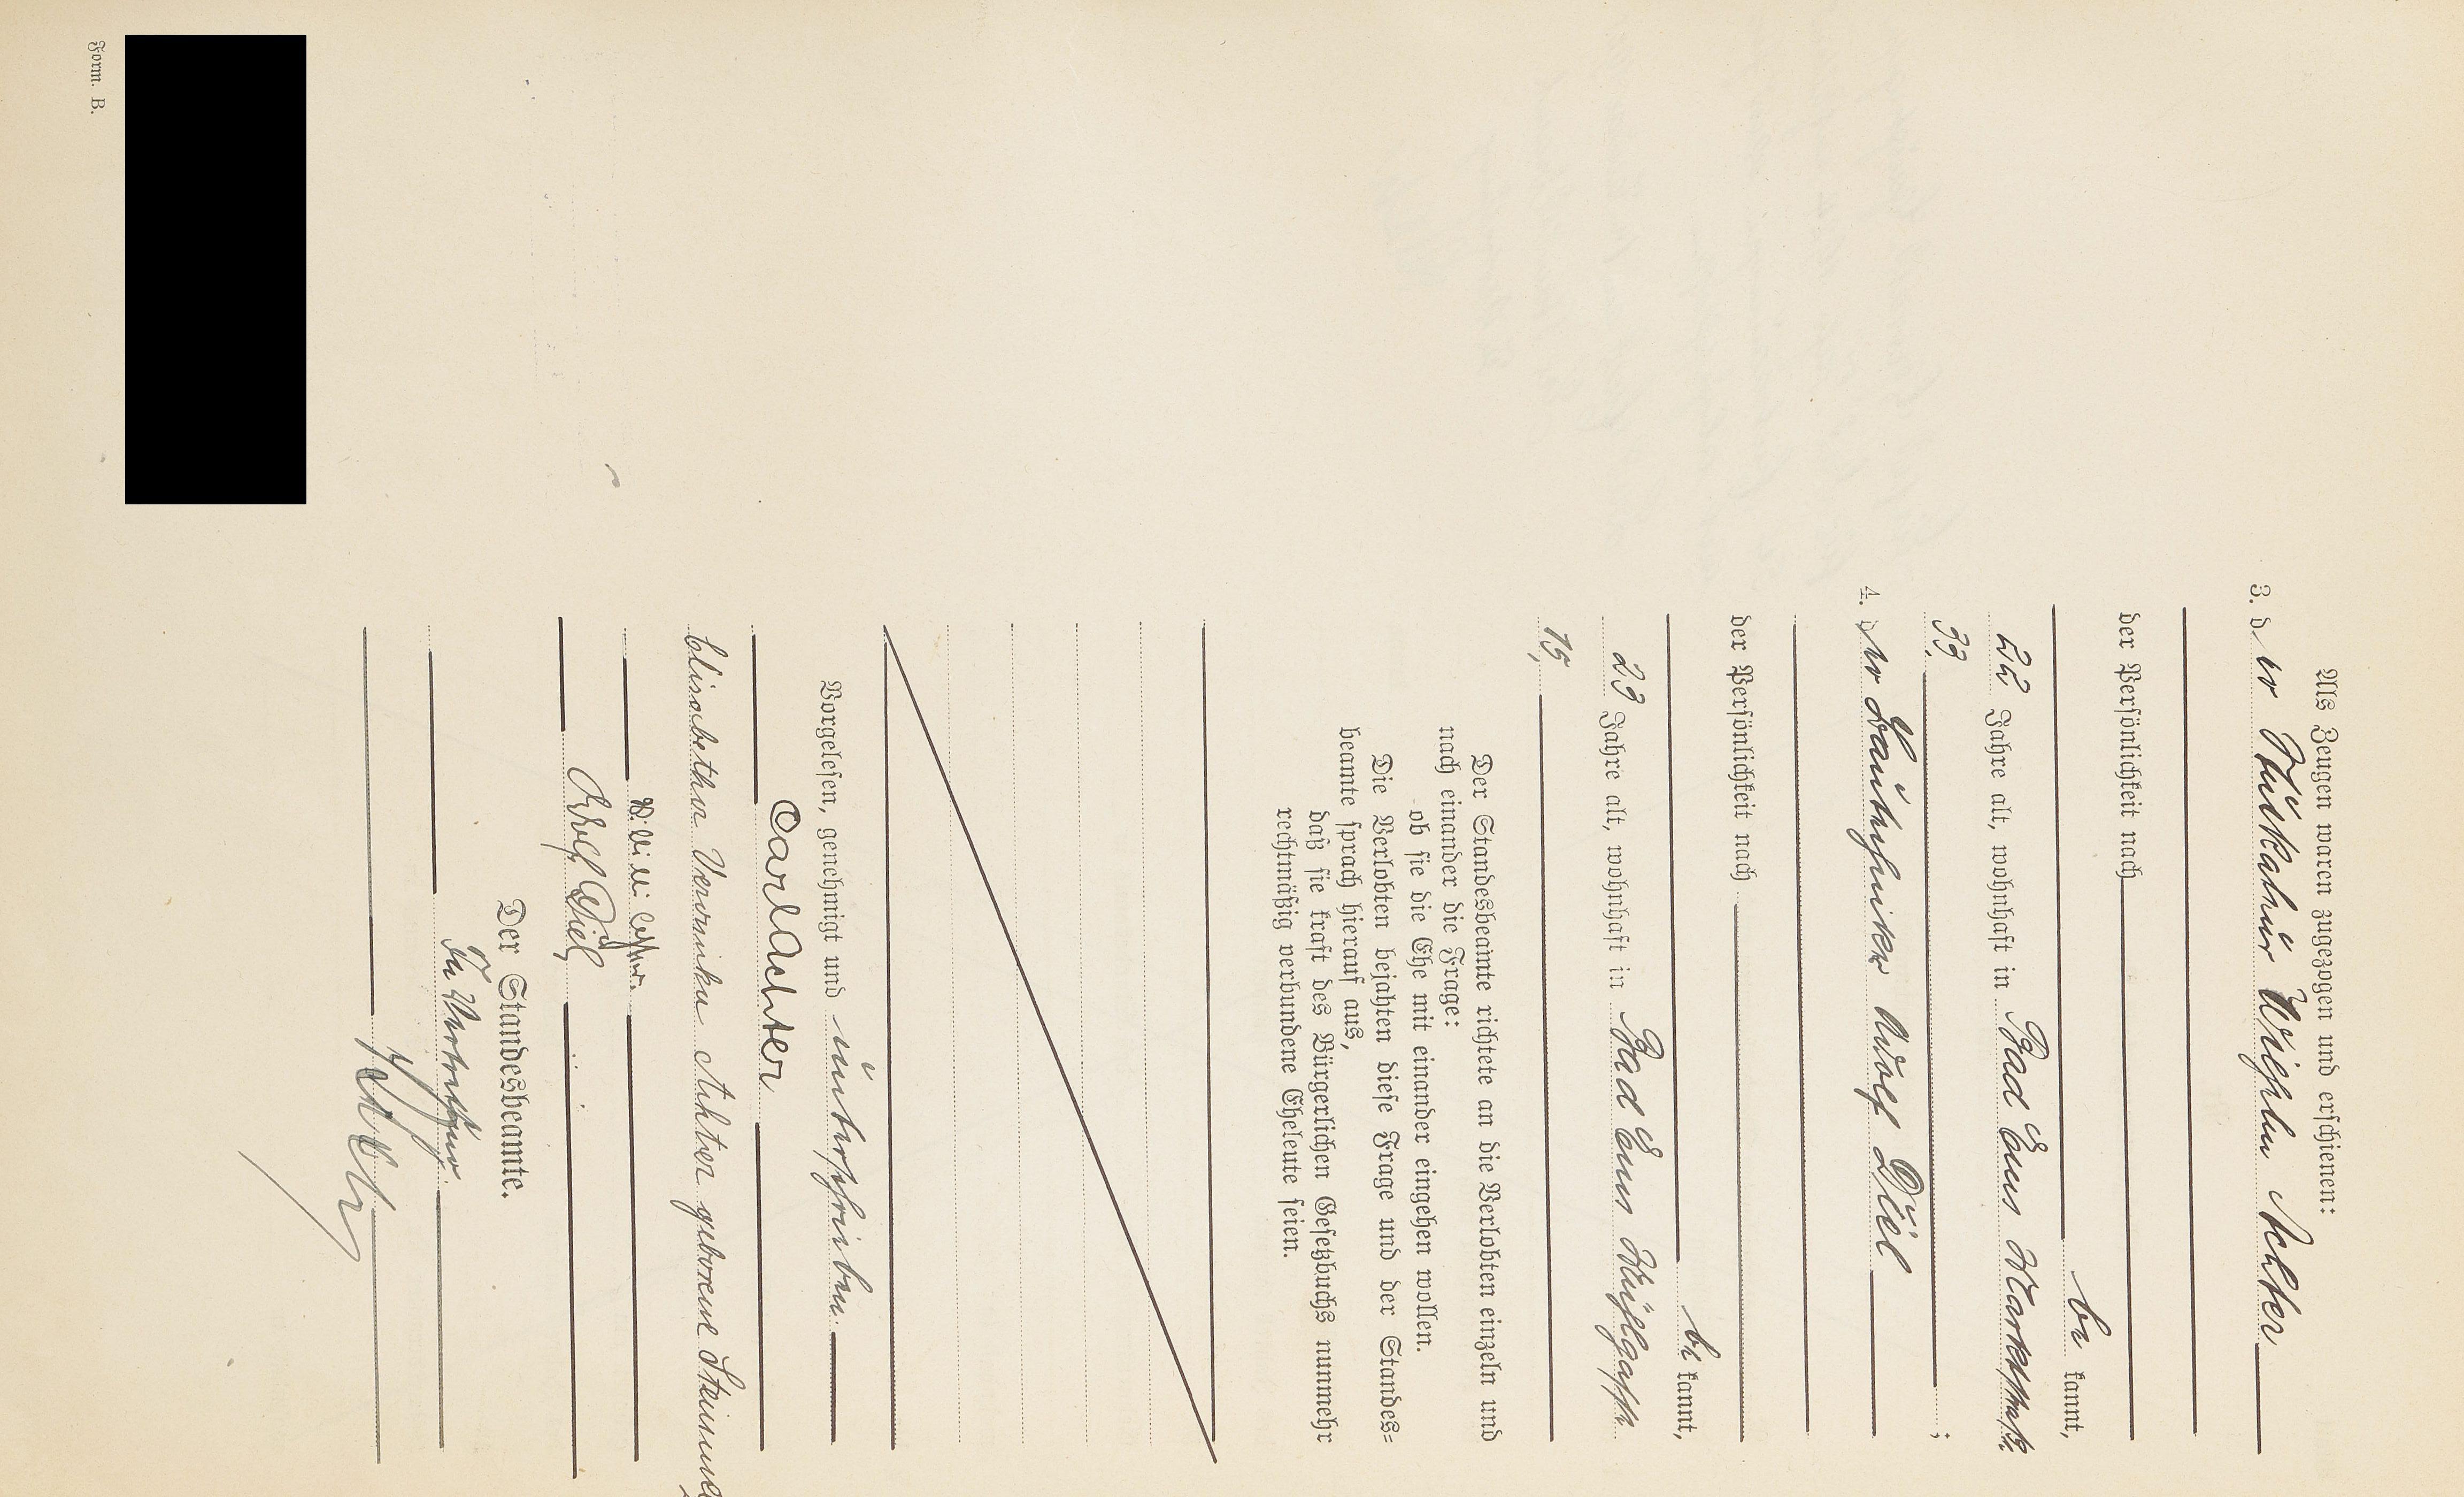 Als Zeugen waren zugezogen und erschienen:
3. der Stukkatör Wilhelm Achter
der Persönlichkeit nach
be kannt,
22 Jahre alt, wohnhaft in Bad Ems Marktstraße
33. ;
4. der Adolf Diel
der Persönlichkeit nach
be kannt,
23 Jahre alt, wohnhaft in Bad Ems
15.
Der Standesbeamte richtete an die Verlobten einzeln und
nach einander die Frage:
ob sie die Ehe mit einander eingehen wollen.
Die Verlobten bejahten diese Frage und der Standes-
beamte sprach hierauf aus,
daß sie kraft des Bürgerlichen Gesetzbuchs nunmehr
rechtmäßig verbundene Eheleute seien.
Vorgelesen, genehmigt und unterschrieben.
Carl Achter
Elisabetha Veronika Achter geborene
Adolf Diel
Der Standesbeamte.
In Vertretung.
Form. B.